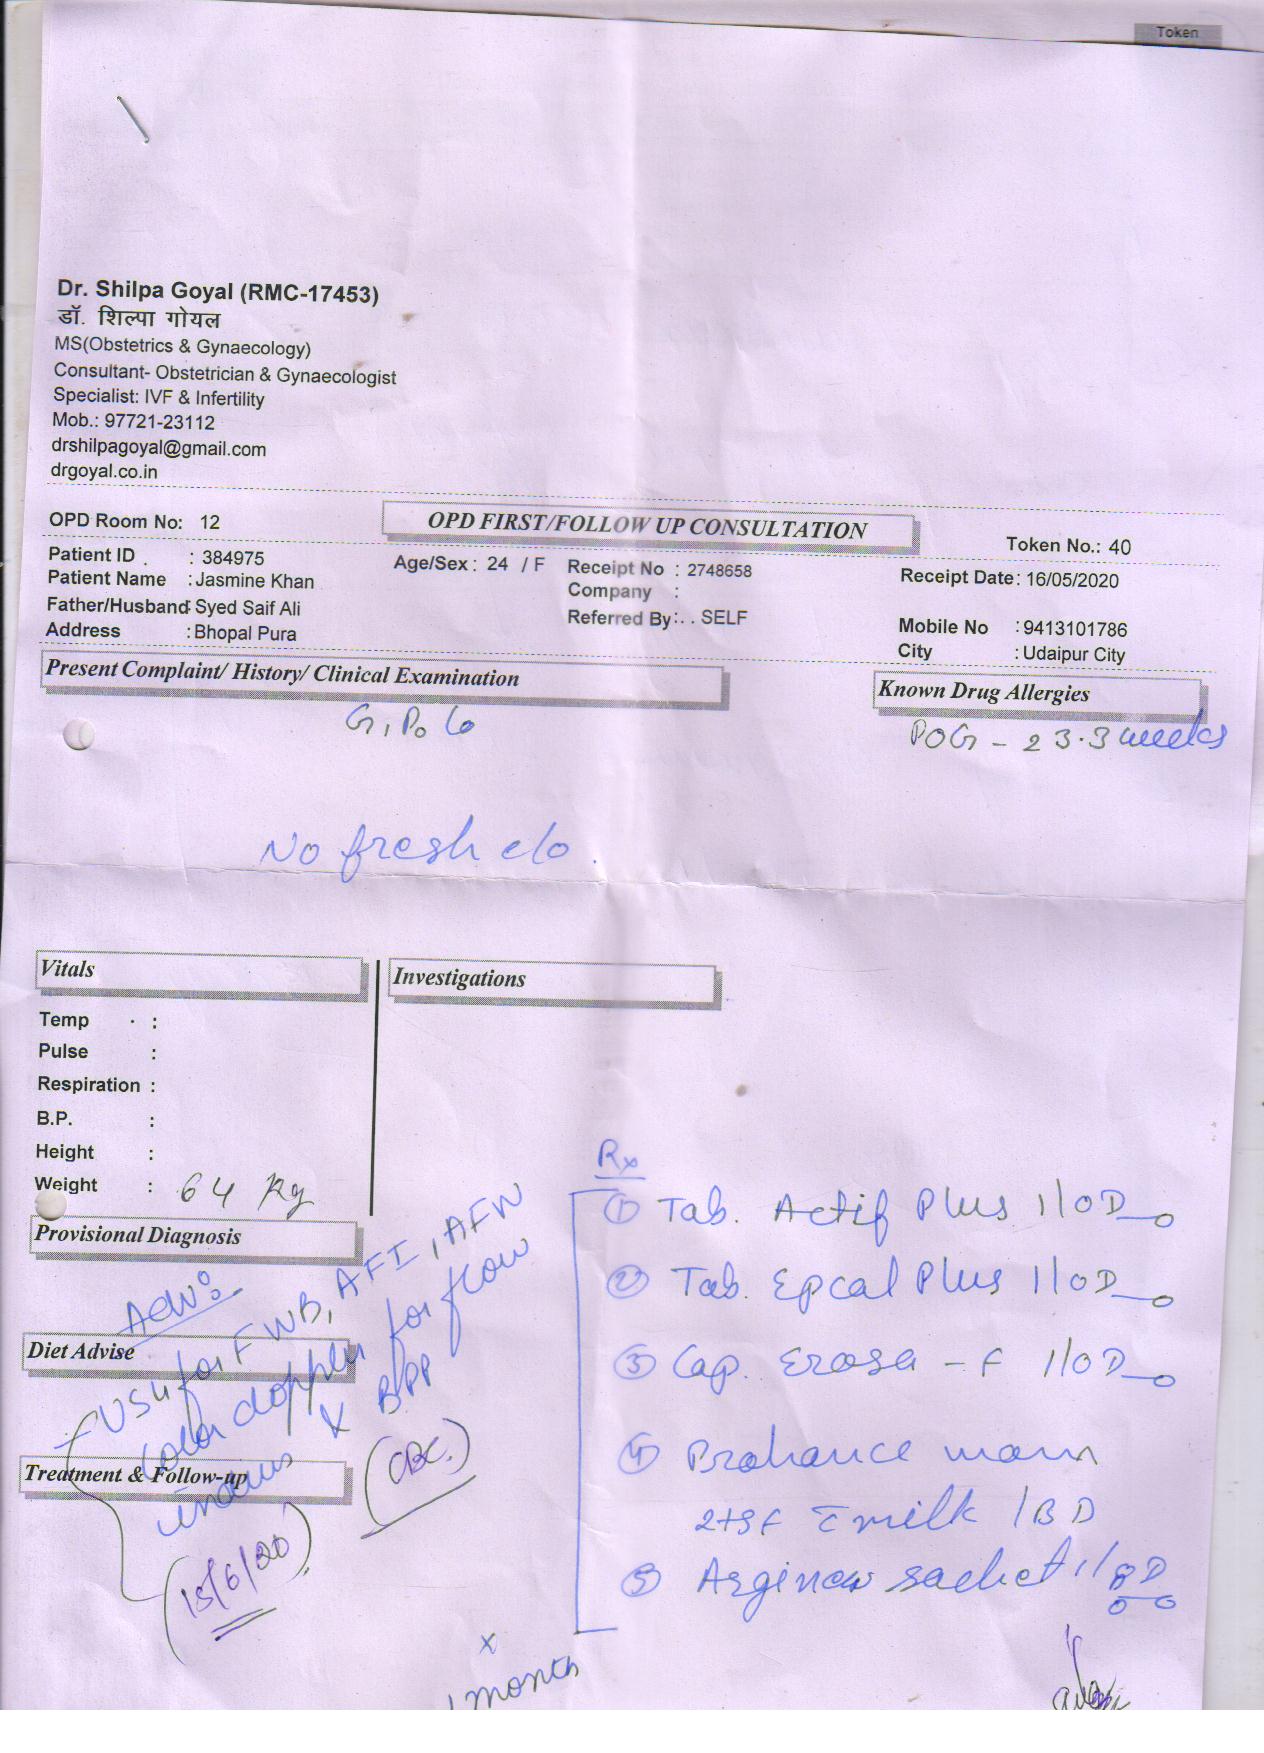 Token
Dr. Shilpa Goyal (RMC-17453)
डॉ. शिल्पा गोयल
MS(Obstetrics & Gynaecology)
Consultant- Obstetrician & Gynaecologist
Specialist: IVF & Infertility
Mob.: 97721-23112
drshilpagoyal@gmail.com
drgoyal.co.in
OPD Room No: 12
OPD FIRST/FOLLOW UP CONSULTATION
Token No.: 40
Patient ID : 384975
Age/Sex : 24 / F
Receipt No : 2748658
Receipt Date: 16/05/2020
Patient Name : Jasmine Khan
Company :
Father/Husband: Syed Saif Ali
Referred By: . . SELF
Mobile No : 9413101786
Address : Bhopal Pura
City : Udaipur City
Present Complaint/ History/ Clinical Examination
Known Drug Allergies
G1P0L0
POG - 23.3 weeks
No fresh c/o.
Vitals
Investigations
Temp :
Pulse :
Respiration :
B.P. :
Height :
Weight : 64 kg
Provisional Diagnosis
Diet Advise
Treatment & Follow-up
Adv:
USG for FWB, AFI, AFW
Color doppler for flow
indices x BPP
(CBC.)
(15/6/20)
Rx
① Tab. Actif Plus 1/OD
② Tab. Epcal Plus 1/OD
③ Cap. Erosa - F 1/OD
④ Prohance mom
2tsf c̄ milk /BD
⑤ Arginew sachet 1/BD
x
1 month